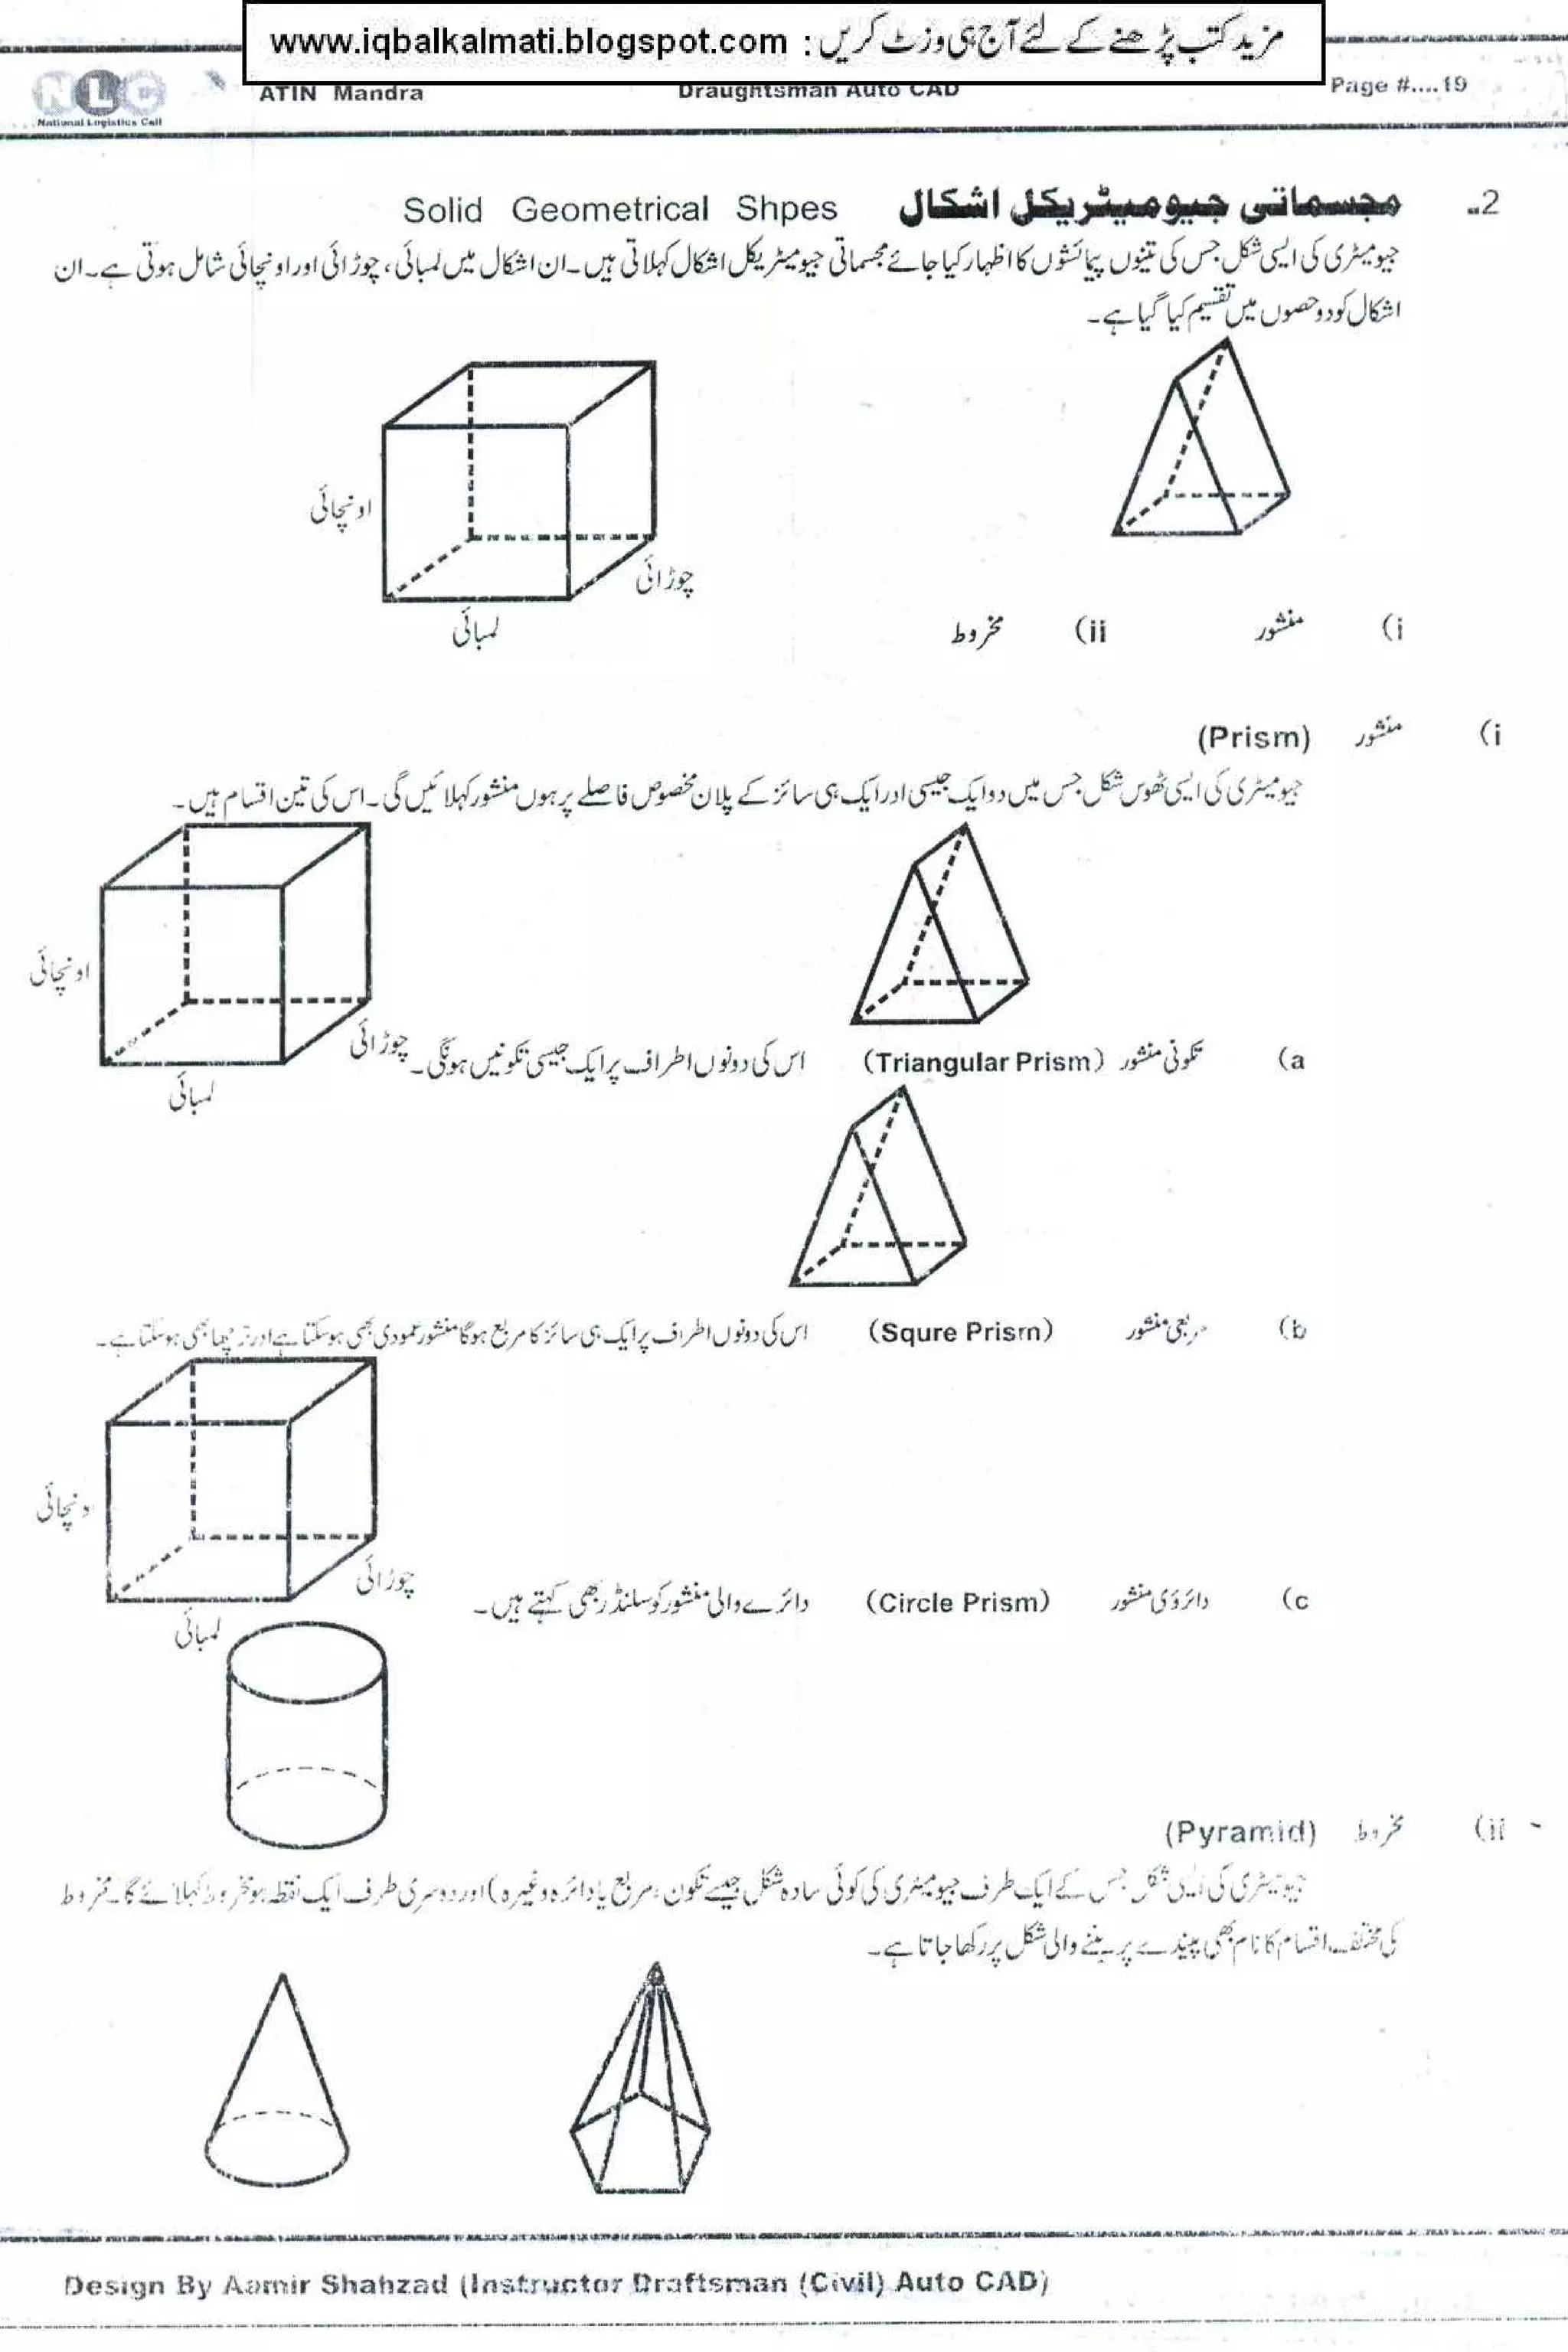 مزید کتب پڑھنے کے لئے آج ہی وزٹ کریں : www.iqbalkalmati.blogspot.com
NLC ATIN Mandra Draughtsman Auto CAD Page #....19
National Logistics Cell
2۔ مجسماتی جیومیٹریکل اشکال Solid Geometrical Shpes
جیومیٹری کی ایسی شکل جس کی تینوں پیمائشوں کا اظہار کیا جائے مجسماتی جیومیٹریکل اشکال کہلاتی ہیں۔ان اشکال میں لمبائی، چوڑائی اور اونچائی شامل ہوتی ہے۔ان
اشکال کو دو حصوں میں تقسیم کیا گیا ہے۔
اونچائی
چوڑائی
لمبائی
i) منشور ii) مخروط
i) منشور (Prism)
جیومیٹری کی ایسی ٹھوس شکل جس میں دو ایک جیسی اور ایک ہی سائز کے پلان مخصوص فاصلے پر ہوں منشور کہلائیں گی۔اس کی تین اقسام ہیں۔
اونچائی
چوڑائی
لمبائی
a) تکونی منشور (Triangular Prism) اس کی دونوں اطراف پر ایک جیسی تکونیں ہونگی۔
b) مربعی منشور (Squre Prism) اس کی دونوں اطراف پر ایک ہی سائز کا مربع ہوگا منشور عمودی بھی ہو سکتا ہے اور ترچھا بھی ہو سکتا ہے۔
اونچائی
چوڑائی
لمبائی
c) دائرؤی منشور (Circle Prism) دائرے والی منشور کو سلنڈر بھی کہتے ہیں۔
ii) مخروط (Pyramid)
جیومیٹری کی ایسی شکل جس کے ایک طرف جیومیٹری کی کوئی سادہ شکل جیسے تکون، مربع یا دائرہ وغیرہ) اور دوسری طرف ایک نقطہ ہو مخروط کہلائے گا۔مخروط
کی مختلف اقسام کا نام بھی پیندے پر بننے والی شکل پر رکھا جاتا ہے۔
Design By Aamir Shahzad (Instructor Draftsman (Civil) Auto CAD)